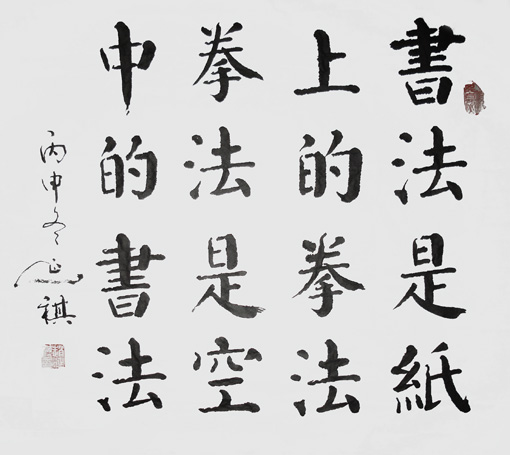 書法是紙
上的拳法
拳法是空
中的書法
丙申冬
祺